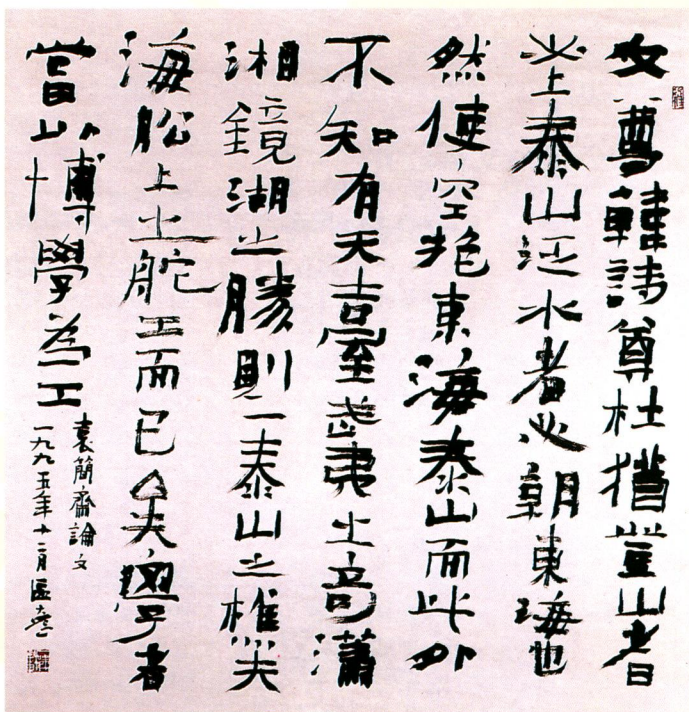 文尊韓詩尊杜猶登山者
必上泰山泛水者必朝東海也
然使空抱東海泰山而此外
不知有天臺武夷之奇瀟
湘鏡湖之勝則一泰山之樵夫
海船上之舵工而已矣學者
當以博學為工
袁簡齋論文
一九九五年十二月區